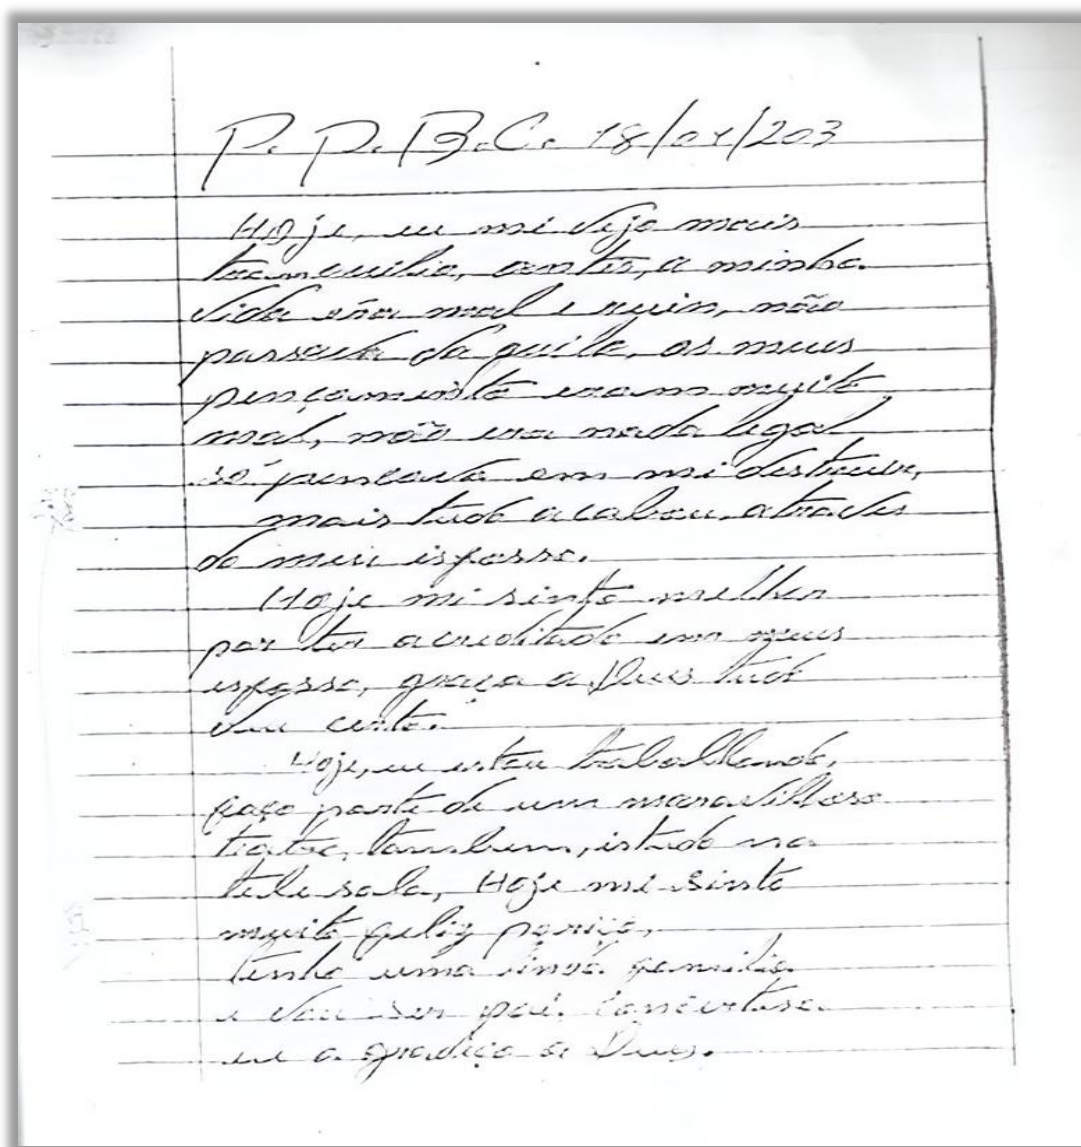 P. P. B. C. 18/01/203
Hoje, eu mi vejo mais
tranquilio, antis, a minha
vida era mal e ruim, não
passava da quilo, os meus
pençamento eram muito
mal, não era nada legal
só pensava em mi destruir,
mais tudo acabou, atraves
do meu isforso.
Hoje mi sinto melhor
por ter acreditado em meus
isforsso, graça a Deus tudo
deu certo.
Hoje, eu estou traballando,
faço parte de um maravilloso
tiatro, tambem, istudo na
tele sala, Hoje mi sinto
muito feliz
tenho uma linda familia
e vou ser pai.
eu a gradeço a Deus.